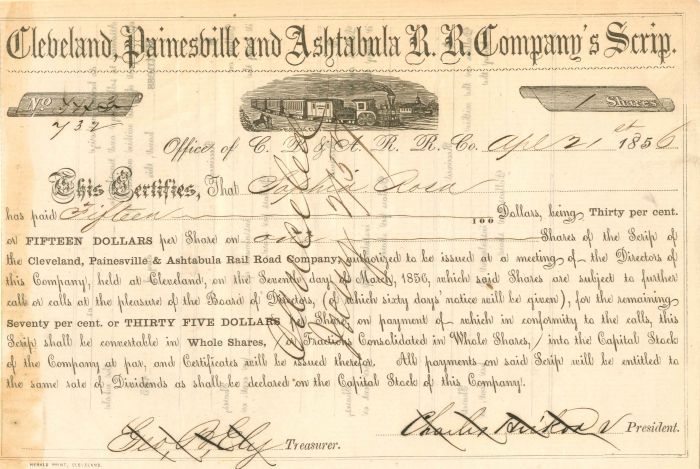 Cleveland, Painesville and Ashtabula R. R. Company's Scrip.
No
1 Shares
732
Office of C. P. & A. R. R. Co. Apl 21st 1856
This Certifies, That Sophia Rosa
has paid Fifteen 100 Dollars, being Thirty per cent.
or FIFTEEN DOLLARS per Share on one Shares of the Scrip of
the Cleveland, Painesville & Ashtabula Rail Road Company, authorized to be issued at a meeting of the Directors of
this Company, held at Cleveland, on the Seventh day of March, 1856, which said Shares are subject to further
call or calls at the pleasure of the Board of Directors, (of which sixty days' notice will be given), for the remaining
Seventy per cent. or THIRTY FIVE DOLLARS Share, on payment of which in conformity to the calls, this
Scrip shall be convertable in Whole Shares, (or Fractions Consolidated in Whole Shares,) into the Capital Stock
of the Company at par, and Certificates will be issued therefor. All payments on said Scrip will be entitled to
the same rate of Dividends as shall be declared on the Capital Stock of this Company.
Cancelled
Geo. B. Ely Treasurer.
Charles Hickox President.
HERALD PRINT, CLEVELAND.